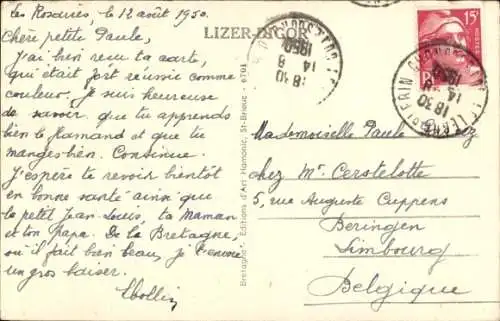 Les Rosaires, le 12 août 1950.
LIZER-DIGOR
Chère petite Paule,
J'ai bien reçu ta carte,
qui était fort réussie comme
couleur. Je suis heureuse
de savoir que tu apprends
bien le flamand et que tu
manges bien. Continue.
J'espère te revoir bientôt
en bonne santé ainsi que
le petit Jean-Louis, ta Maman
et ton Papa. De la Bretagne,
où il fait bien beau, je t'envoie
un gros baiser.
"Bretagne". Editions d'Art Hamonic, St-Brieuc - 6701
18 30
14 - 8
1950
15F
18 30
14 - 8
1950
Mademoiselle Paule
chez Mr. Cerstelotte
5, rue Auguste Cuppens
Beringen
Limbourg
Belgique